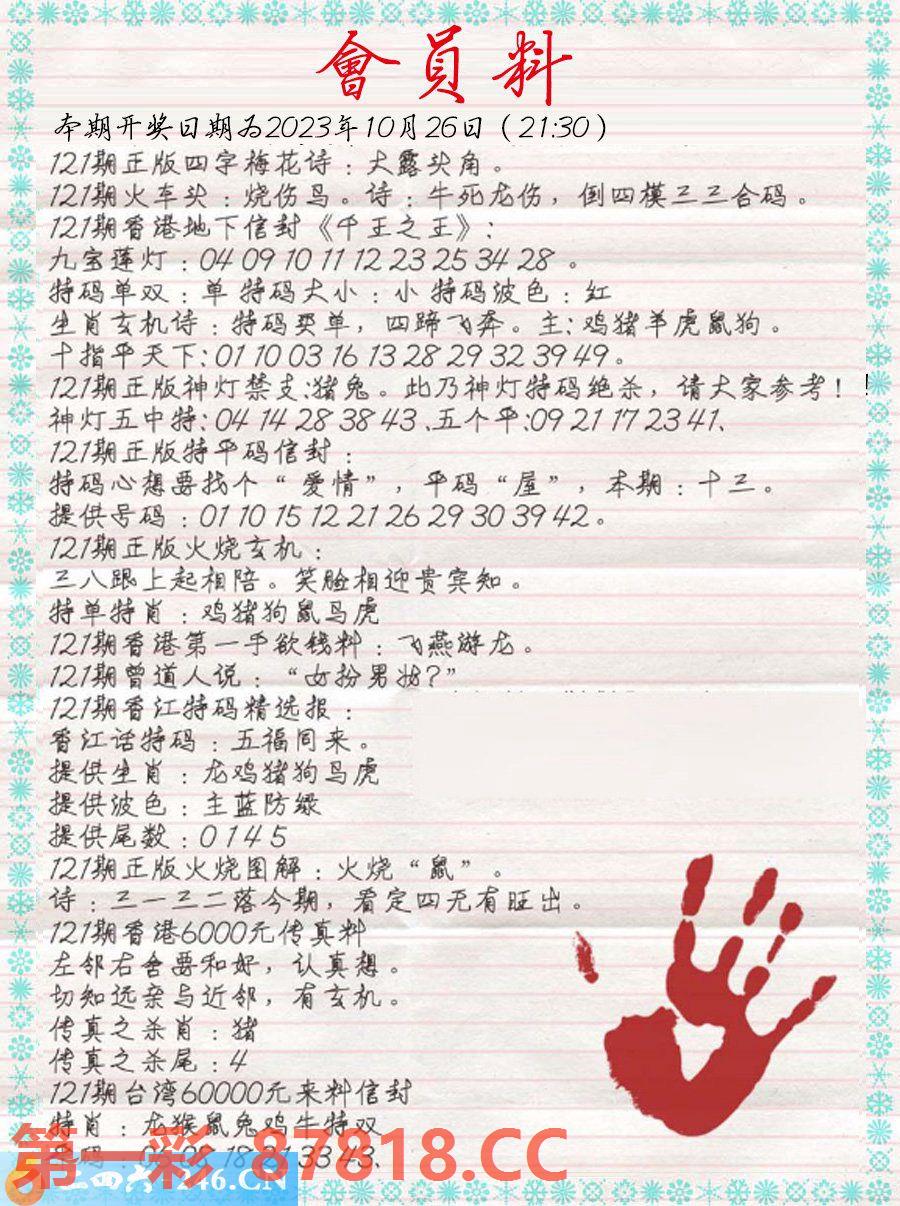 會員料
本期开奖日期为2023年10月26日（21:30）
121期正版四字梅花诗：大露头角。
121期火车头：烧伤鸟。诗：牛死龙伤，倒四模三三合码。
121期香港地下信封《千王之王》：
九宝莲灯：04 09 10 11 12 23 25 34 28 。
特码单双：单 特码大小：小 特码波色：红
生肖玄机诗：特码买单，四蹄飞奔。主：鸡猪羊虎鼠狗。
十指平天下：01 10 03 16 13 28 29 32 39 49。
121期正版神灯禁支：猪兔。此乃神灯特码绝杀，请大家参考！！
神灯五中特：04 14 28 38 43 、五个平：09 21 17 23 41、
121期正版特平码信封：
特码心想要找个“ 爱情”，平码“屋”，本期：十三。
提供号码：01 10 15 12 21 26 29 30 39 42。
121期正版火烧玄机：
三八跟上起相陪。笑脸相迎贵宾知。
特单特肖：鸡猪狗鼠马虎
121期香港第一手欲钱料：飞燕游龙。
121期曾道人说：“女扮男妆?”
121期香江特码精选报：
香江话特码：五福同来。
提供生肖：龙鸡猪狗马虎
提供波色：主蓝防绿
提供尾数：0 1 4 5
121期正版火烧图解：火烧“鼠”。
诗：三一三二落今期，看定四无有旺出。
121期香港6000元传真料
左邻右舍要和好，认真想。
切知远亲与近邻，有玄机。
传真之杀肖：猪
传真之杀尾：4
121期台湾60000元来料信封
特肖：龙猴鼠兔鸡牛特双
18 21 33 43、
第一彩 87818.CC
二四六 246.CN